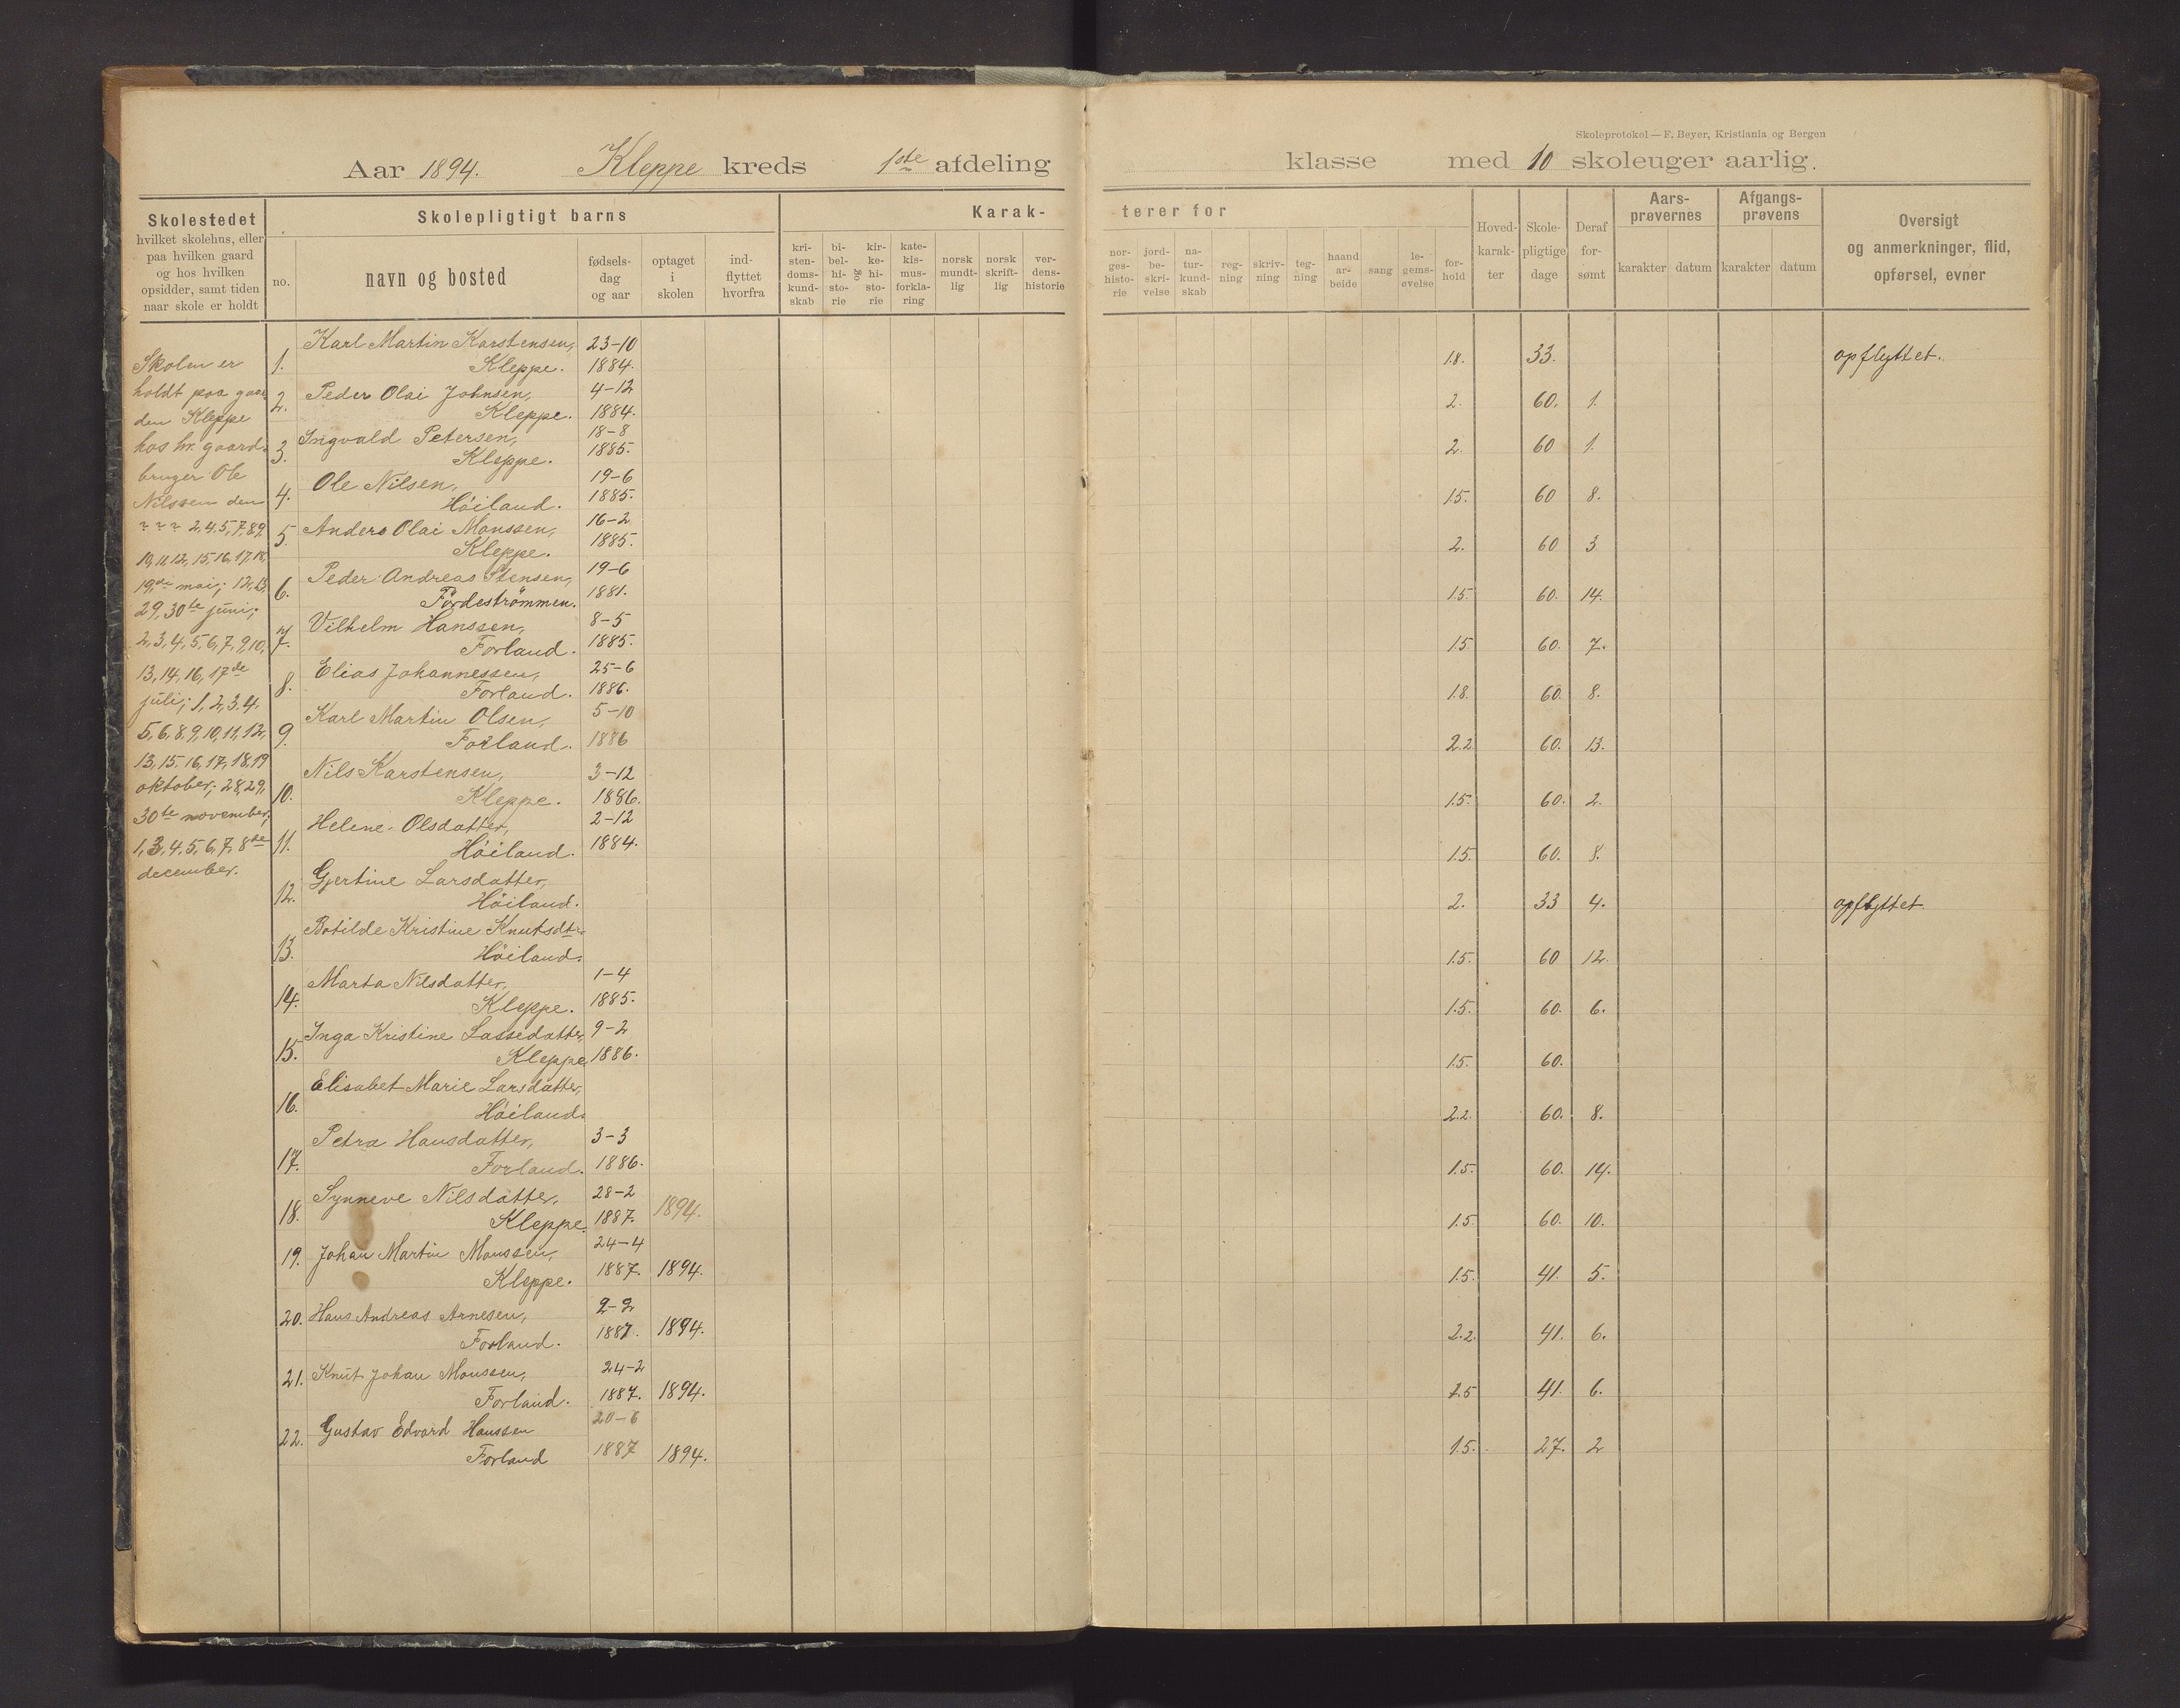 Skoleprotokol — F. Beyer, Kristiania og Bergen
Aar 1894. Kleppe kreds 1ste afdeling klasse med 10 skoleuger aarlig.
Skolestedet
hvilket skolehus, eller
paa hvilken gaard
og hos hvilken
opsidder, samt tiden
naar skole er holdt
Skolepligtigt barns
no.
navn og bosted
fødsels-
dag
og aar
optaget
i
skolen
ind-
flyttet
hvorfra
Karak-
kri-
sten-
doms-
kund-
skab
bi-
bel-
hi-
sto-
rie
og
kir-
ke-
hi-
sto-
rie
kate-
kis-
mus-
forkla-
ring
norsk
mundt-
lig
norsk
skrift-
lig
ver-
dens-
historie
terer for
nor-
ges-
histo-
rie
jord-
be-
skri-
velse
na-
tur-
kund-
skab
reg-
ning
skriv-
ning
teg-
ning
haand
ar-
beide
sang
le-
gems-
øvelse
for-
hold
Hoved-
karak-
ter
Skole-
pligtige
dage
Deraf
for-
sømt
Aars-
prøvernes
karakter datum
Afgangs-
prøvens
karakter datum
Oversigt
og anmerkninger, flid,
opførsel, evner
Skolen er
holdt paa gaar
den Kleppe
hos hr. gaard-
bruger Ole
Nilssen den
2,4,5,7,8,9,
10,11,12,15,16,17,18,
19de mai; 12,13,
29,30te juni;
2,3,4,5,6,7,9,10,
13,14,16,17de
juli; 1,2,3,4,
5,6,8,9,10,11,12,
13,15,16,17,18,19
oktober; 28,29,
30te november;
1,3,4,5,6,7,8de
december.
1. Karl Martin Karstensen, 23-10
Kleppe. 1884. 1.8. 33. opflyttet.
2. Peder Olai Johnsen, 4-12
Kleppe. 1884. 2. 60. 1.
3. Ingvald Petersen, 18-8
Kleppe. 1885. 2. 60 1.
4. Ole Nilsen, 19-6
Höiland. 1885. 1.5. 60 8.
5. Anders Olai Monssen, 16-2
Kleppe. 1885. 2. 60 3
6. Peder Andreas Stensen, 19-6
Fördeströmmen. 1881. 1.5. 60. 14.
7. Vilhelm Hanssen, 8-5
Forland. 1885. 1.5 60. 7.
8. Elias Johannessen, 25-6
Forland. 1886. 1.8. 60. 8.
9. Karl Martin Olsen, 5-10
Forland. 1886 2.2 60. 13.
10. Nils Karstensen, 3-12
Kleppe. 1886. 1.5. 60. 2.
11. Helene Olsdatter, 2-12
Höiland. 1884. 1.5. 60. 8.
12. Gjertine Larsdatter,
Höiland. 2. 33 4. opflyttet.
13. Botilde Kristine Knutsdtr.
Höiland. 1.5. 60 12.
14. Marta Nilsdatter, 1-4
Kleppe. 1885. 1.5. 60. 6.
15. Inga Kristine Lassedatter, 9-2
Kleppe 1886. 1.5. 60.
16. Elisabet Marie Larsdatter,
Höiland. 2.2. 60. 8.
17. Petra Hansdatter, 3-3
Forland. 1886. 1.5. 60. 14.
18. Synneve Nilsdatter, 28-2
Kleppe. 1887. 1894. 1.5. 60. 10.
19. Johan Martin Monssen, 24-4
Kleppe. 1887. 1894. 1.5. 41. 5.
20. Hans Andreas Arnesen, 2-2
Forland. 1887. 1894. 2.2. 41. 6.
21. Knut Johan Monssen, 24-2
Forland. 1887. 1894. 1.5 41. 6.
22. Gustav Edvard Hanssen 20-6
Forland 1887 1894. 1.5. 27. 2